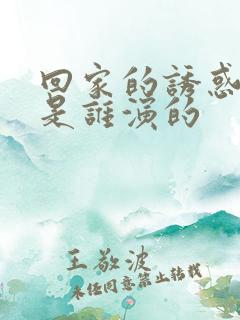 回家的誘惑
是誰演的
王敬波
未经同意禁止转载